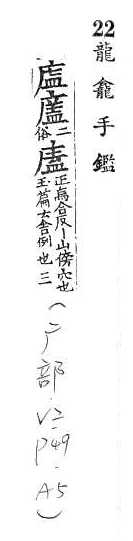 22 龍龕手鑑
二俗
正烏合反山傍穴也
玉篇云舍例也三
(广部.V2.p49.A5)